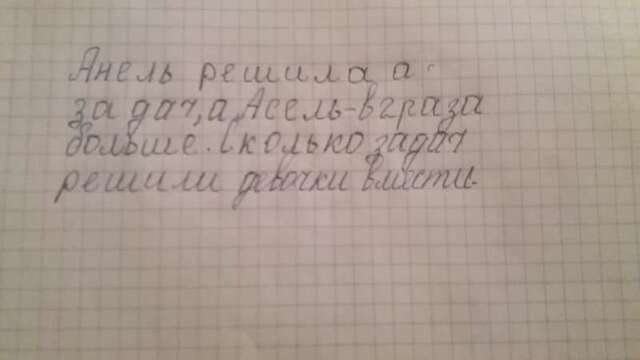 Анель решила a
задач, а Асель-в 2 раза
больше. Сколько задач
решили девочки вместе.